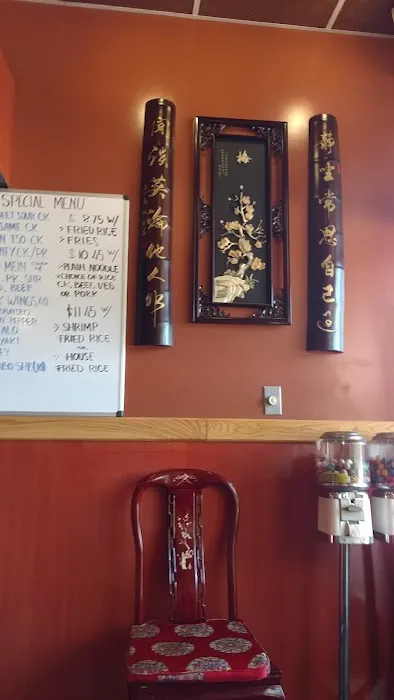 SPECIAL MENU
SOUR CK
SAME CK
TSO CK
CK/PR
MEIN
PR. SHR
BEEF
WINGS
PEPPER
$ 8.75 W/
> FRIED RICE
> FRIES
$ 10.45 W/
> PLAIN NOODLE
> CHOICE OF RICE
CK, BEEF, VEG
OR PORK
$11.45 W/
> SHRIMP
FRIED RICE
OR
> HOUSE
FRIED RICE
闲谈莫論他人非
梅
靜坐常思自己过